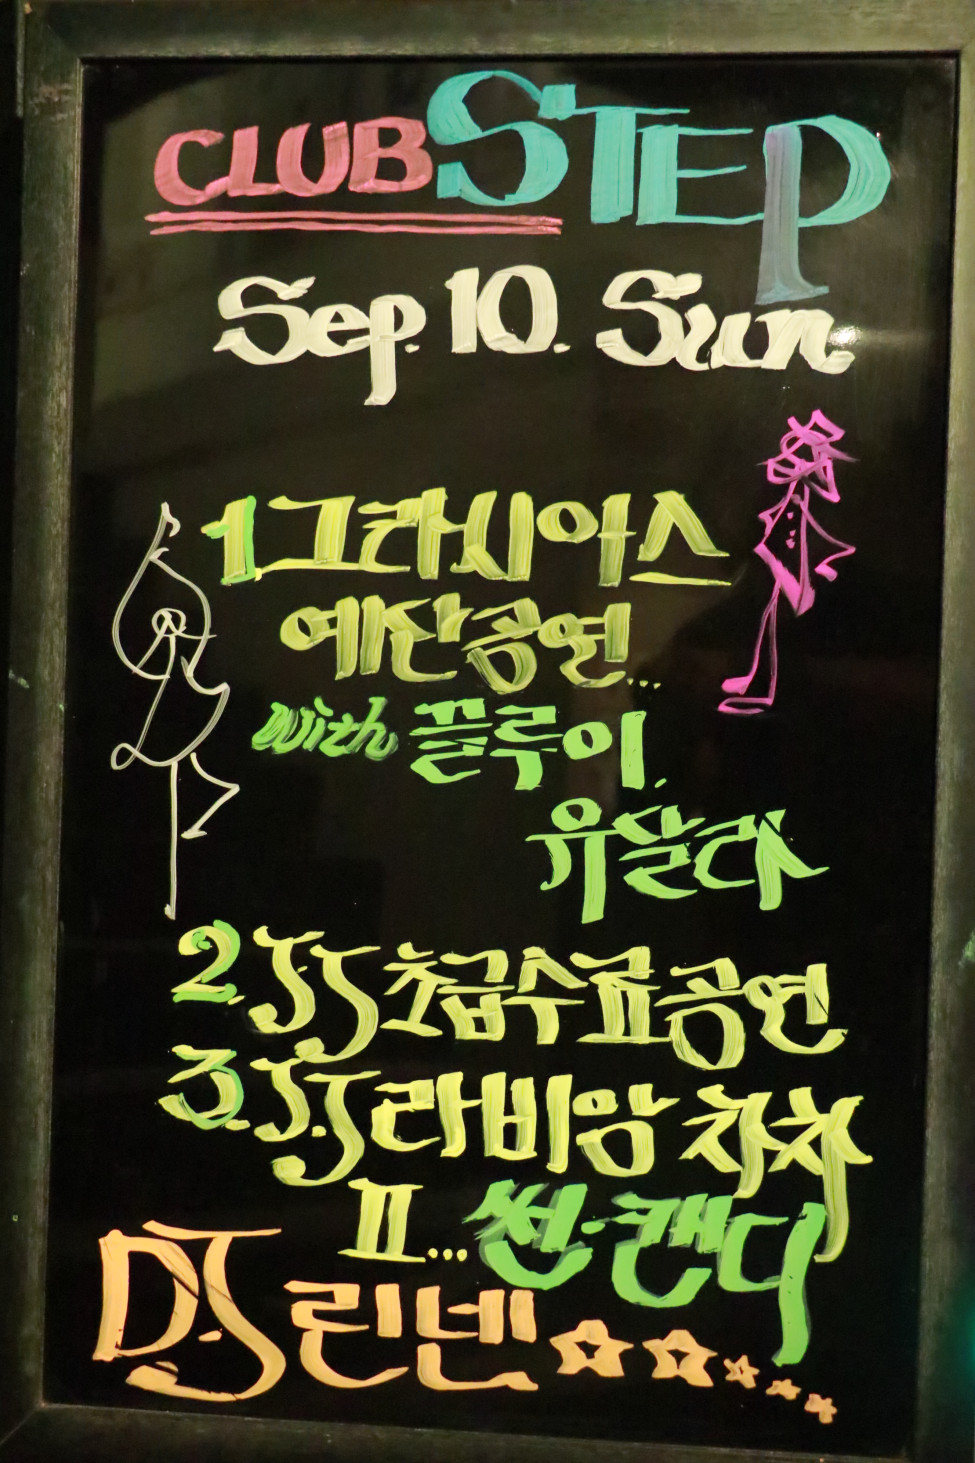 CLUB STEP
Sep. 10. Sun
1 그라시아스
예산공연...
with 끌루이,
유달라
2. J.J 초급수료공연
3. J.J 라비앙 차차
II... 썬.캔디
D.J 린넨